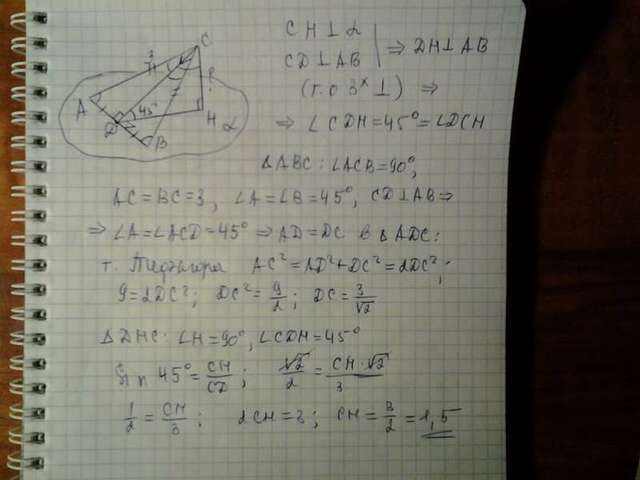 C
3
A
D
45°
B
H
α
CH⊥α
CD⊥AB | ⇒ DH⊥AB
(т. о 3ˣ ⊥) ⇒
⇒ ∠CDH=45°=∠DCH
△ABC: ∠ACB=90°,
AC=BC=3, ∠A=∠B=45°, CD⊥AB⇒
⇒ ∠A=∠ACD=45° ⇒ AD=DC в △ADC:
т. Пифагора AC²=AD²+DC²=2DC²;
9=2DC²; DC²=9/2; DC=3/√2
△DHC: ∠H=90°, ∠CDH=45°
Sin 45°=CH/CD; √2/2=CH·√2/3
1/2=CH/3; 2CH=3; CH=3/2=1,5